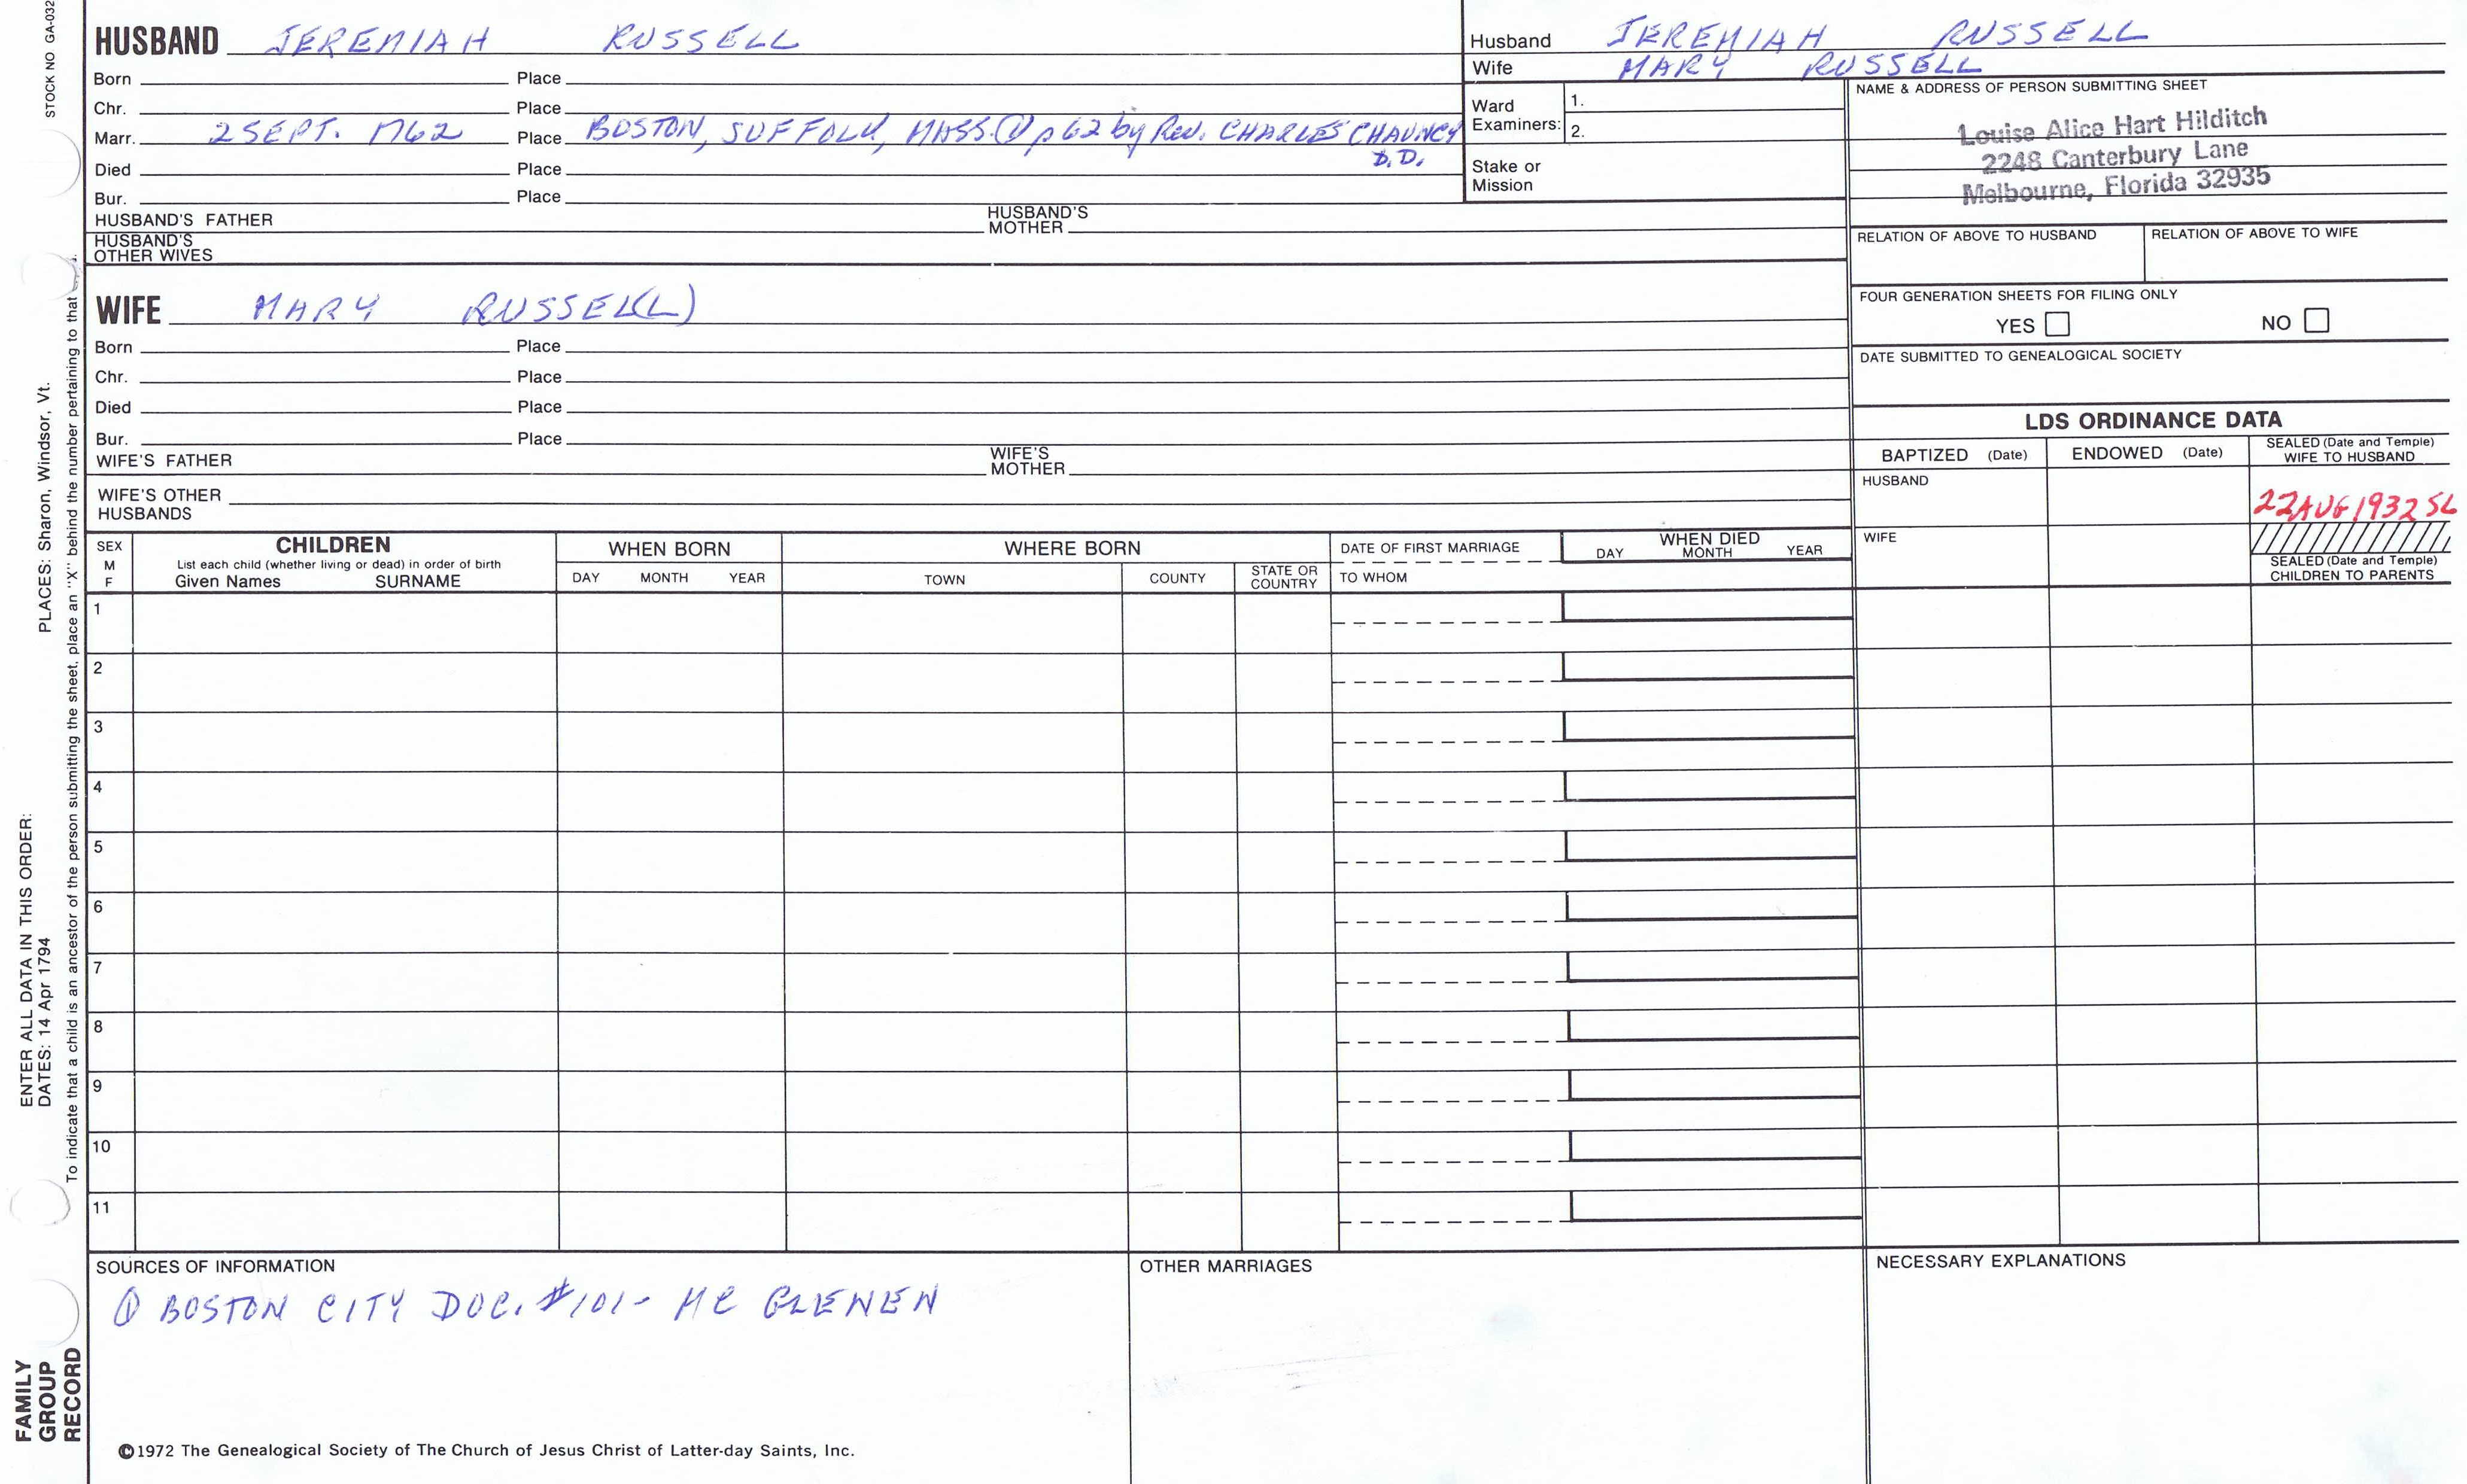 STOCK NO GA-032
HUSBAND JEREMIAH RUSSELL
Born Place
Chr. Place
Marr. 2 SEPT. 1762 Place BOSTON, SUFFOLK, MASS. ① p 62 by Rev. CHARLES CHAUNCY
D.D.
Died Place
Bur. Place
HUSBAND'S FATHER HUSBAND'S MOTHER
HUSBAND'S OTHER WIVES
Husband JEREMIAH RUSSELL
Wife MARY RUSSELL
Ward Examiners: 1.
2.
Stake or Mission
NAME & ADDRESS OF PERSON SUBMITTING SHEET
Louise Alice Hart Hilditch
2248 Canterbury Lane
Melbourne, Florida 32935
RELATION OF ABOVE TO HUSBAND RELATION OF ABOVE TO WIFE
FOUR GENERATION SHEETS FOR FILING ONLY
YES NO
DATE SUBMITTED TO GENEALOGICAL SOCIETY
WIFE MARY RUSSEL(L)
Born Place
Chr. Place
Died Place
Bur. Place
WIFE'S FATHER WIFE'S MOTHER
WIFE'S OTHER HUSBANDS
LDS ORDINANCE DATA
BAPTIZED (Date) ENDOWED (Date) SEALED (Date and Temple) WIFE TO HUSBAND
HUSBAND
22 AUG 1932 SL
WIFE
SEALED (Date and Temple) CHILDREN TO PARENTS
SEX M F
CHILDREN
List each child (whether living or dead) in order of birth
Given Names SURNAME
WHEN BORN
DAY MONTH YEAR
WHERE BORN
TOWN COUNTY STATE OR COUNTRY
DATE OF FIRST MARRIAGE
TO WHOM
WHEN DIED
DAY MONTH YEAR
1
2
3
4
5
6
7
8
9
10
11
SOURCES OF INFORMATION
① BOSTON CITY DOC. #101- MC GLENEN
OTHER MARRIAGES
NECESSARY EXPLANATIONS
©1972 The Genealogical Society of The Church of Jesus Christ of Latter-day Saints, Inc.
FAMILY GROUP RECORD
ENTER ALL DATA IN THIS ORDER:
DATES: 14 Apr 1794 PLACES: Sharon, Windsor, Vt.
To indicate that a child is an ancestor of the person submitting the sheet, place an "X" behind the number pertaining to that